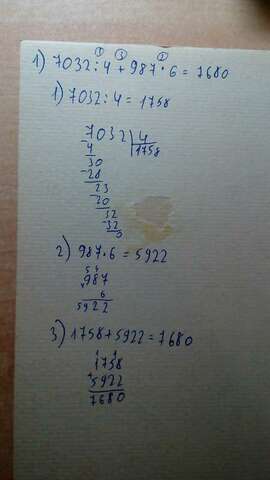 ① ③ ②
1) 7032:4+987·6=7680
1) 7032:4=1758
7032 4
4 1758
30
-28
23
-20
32
-32
0
2) 987·6=5922
5 4
987
6
5922
3) 1758+5922=7680
1 1
1758
+5922
7680